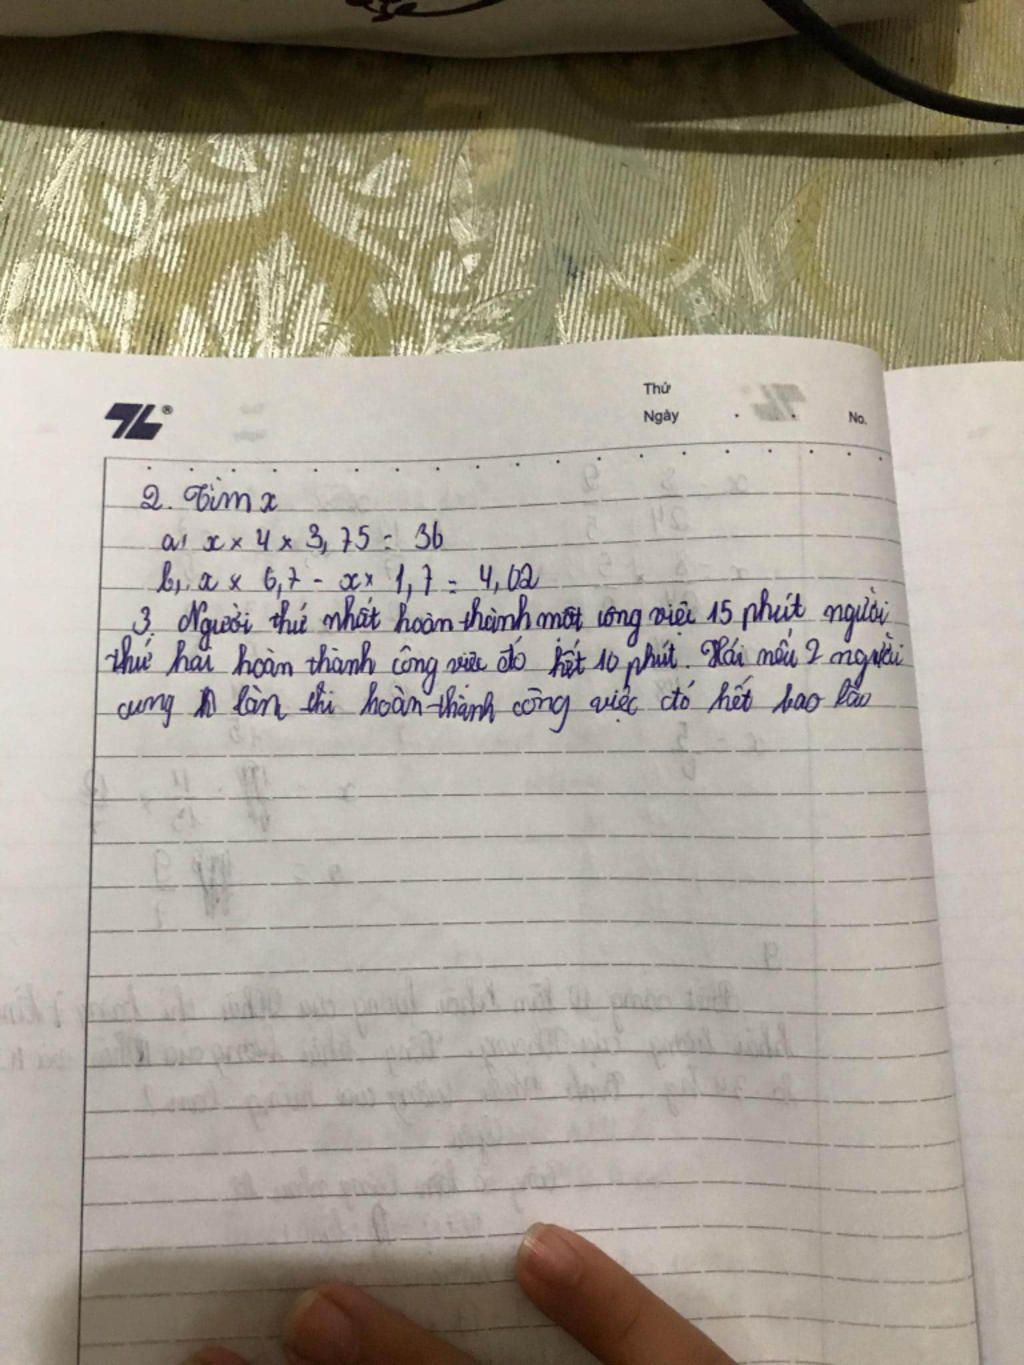 Thứ
Ngày . . No.
2. Tìm x
a, x × 4 × 3,75 = 36
b, x × 6,7 - x × 1,7 = 4,02
3. Người thứ nhất hoàn thành một công việc 15 phút người
thứ hai hoàn thành công việc đó hết 10 phút. Hỏi nếu 2 người
cung làn thì hoàn thành công việc đó hết bao lâu